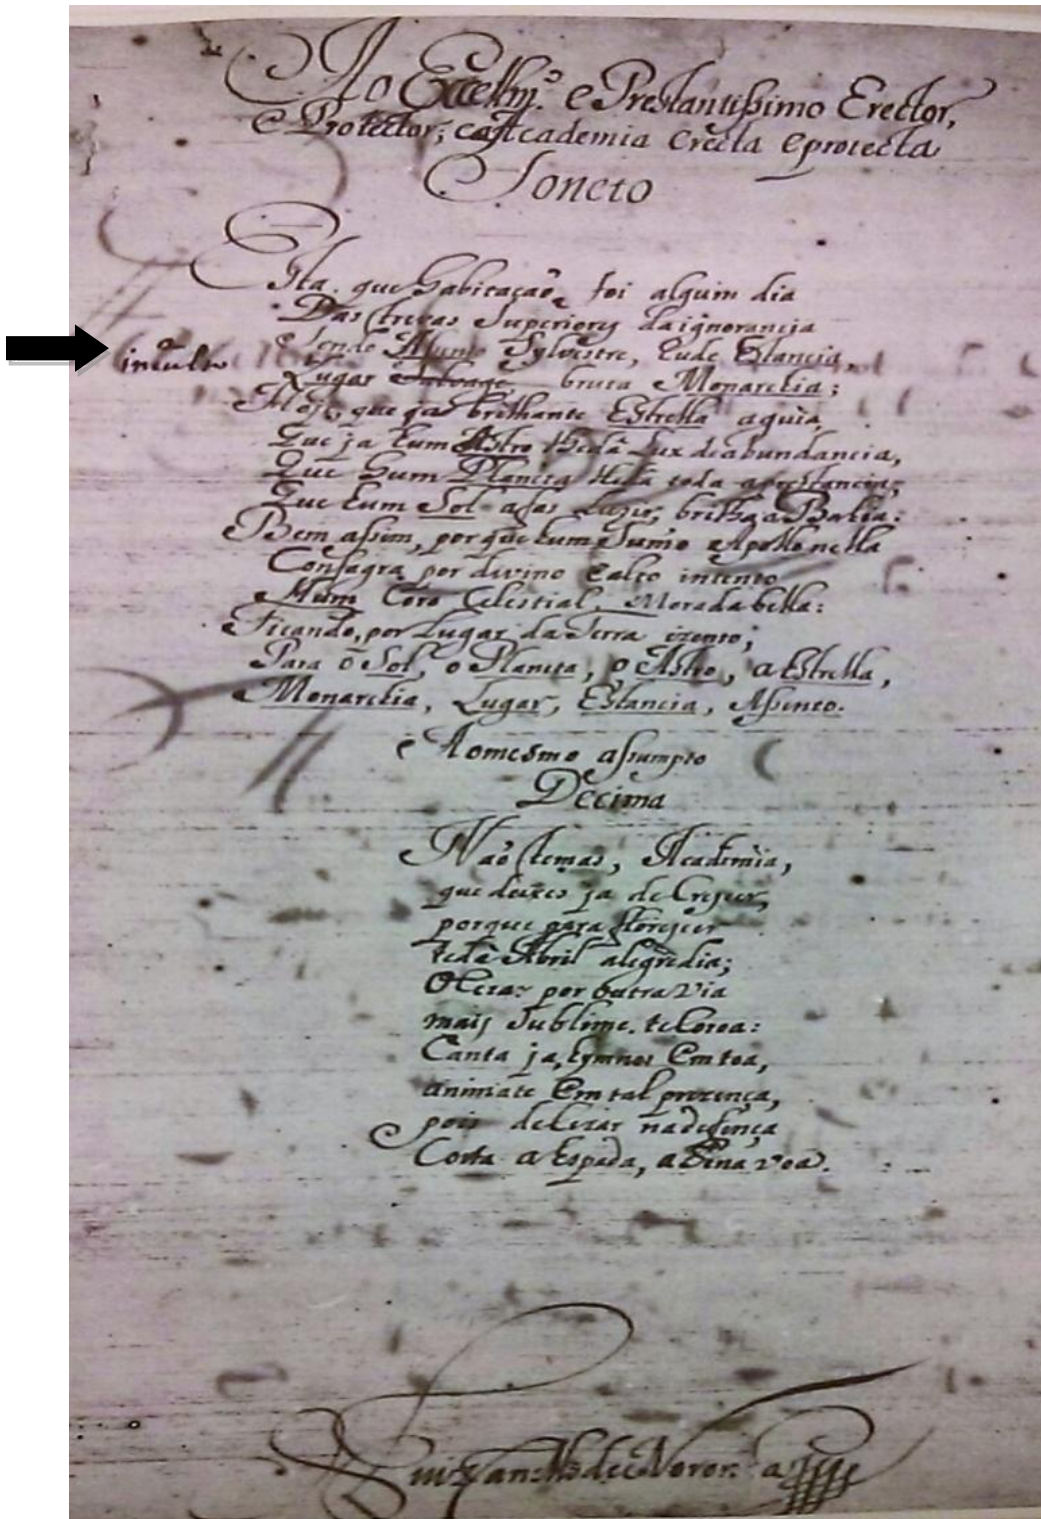 Ao Excellm.º e Prestantissimo Erector,
e Protector; e a Academia erecta e protecta
Soneto
Esta, que habitação foi algum dia
Das trevas Superiores da ignorancia
inculto
Sendo Assento Sylvestre, rude Estancia,
Lugar Salvage, bruta Monarchia;
Hoje, que ja brilhante Estrella a guia,
Que ja hum Astro lhe dá Lux de abundancia,
Que hum Planeta lhe dá toda a prestancia;
Que hum Sol a faz Luzir, brilha a Bahia:
Bem assim, porque hum Sumo Apollo nella
Consagra por divino e alto intento
Hum Coro Celestial, Morada bella:
Ficando, por Lugar da Terra izento,
Para o Sol, o Planeta, o Astro, a Estrella,
Monarchia, Lugar, Estancia, Assento.
Ao mesmo assumpto
Decima
Não temas, Academia,
que deixes ja de Crescer,
porque para florescer
te dá Abril alegre dia;
por outra via
mais Sublime te Coroa:
Canta ja, hymnos Em toa,
animate Em tal prezença,
pois na defença
Corta a Espada, a Pena voa.
Luiz de Noronha